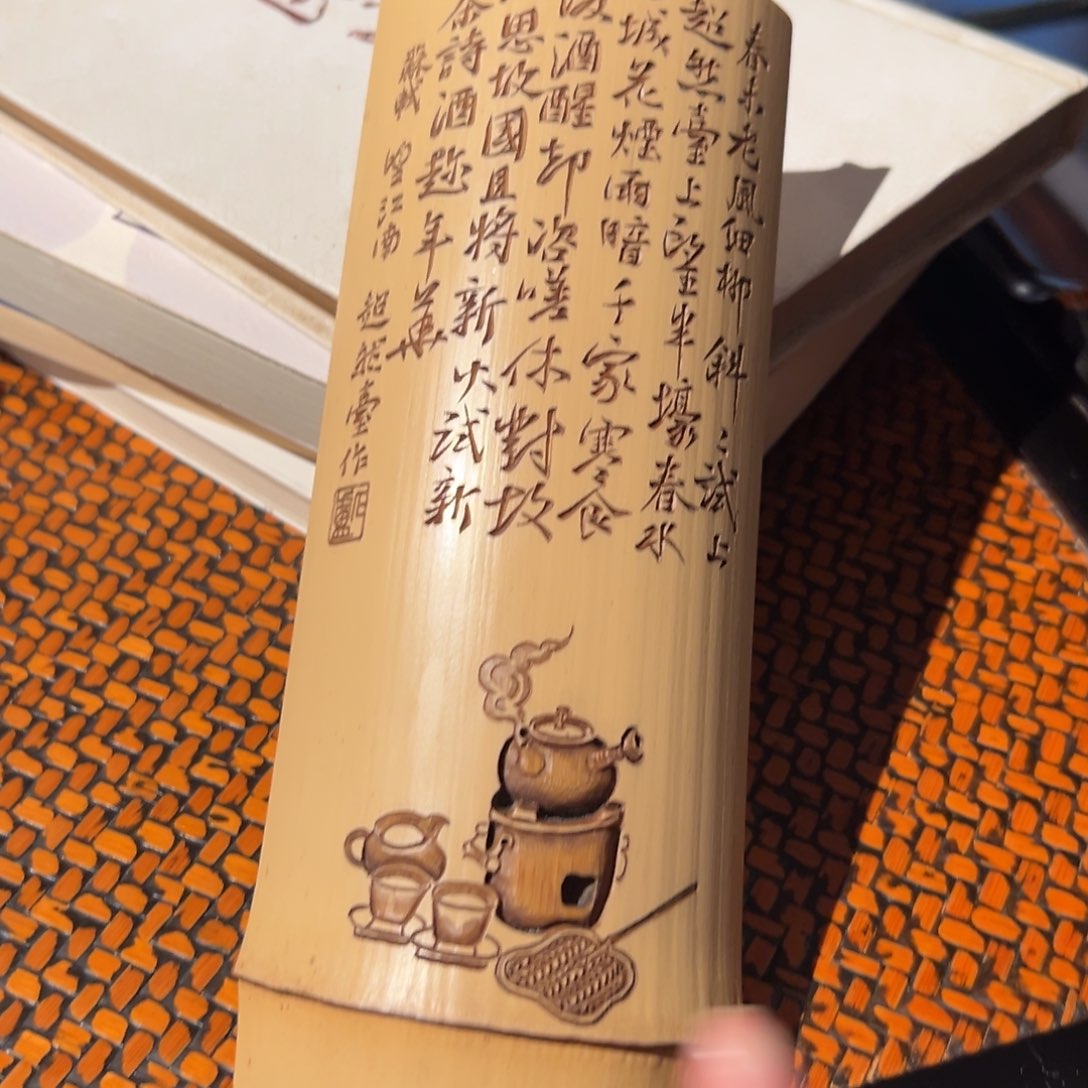 春未老風細柳斜〻試上
超然臺上望半壕春水
城花煙雨暗千家寒食
後酒醒卻咨嗟休對故
思故國且將新火試新
茶詩酒趁年華
蘇軾 望江南 超然臺作